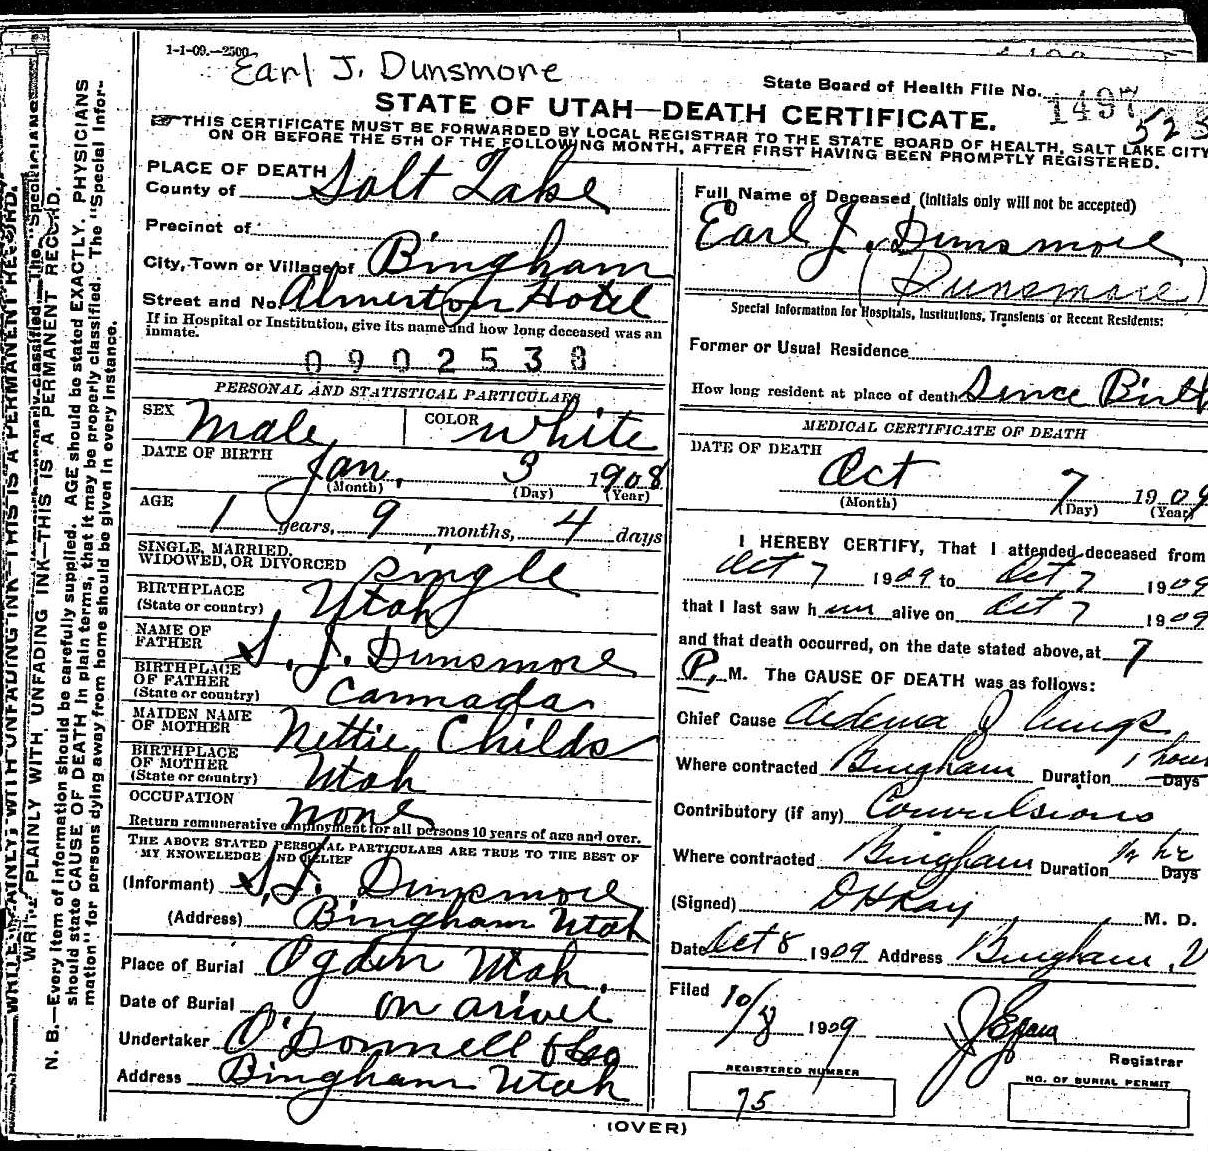 1-1-09.—2500
Earl J. Dunsmore
State Board of Health File No.
1497
523
STATE OF UTAH—DEATH CERTIFICATE.
THIS CERTIFICATE MUST BE FORWARDED BY LOCAL REGISTRAR TO THE STATE BOARD OF HEALTH, SALT LAKE CITY,
ON OR BEFORE THE 5TH OF THE FOLLOWING MONTH, AFTER FIRST HAVING BEEN PROMPTLY REGISTERED.
WRITE PLAINLY WITH UNFADING INK—THIS IS A PERMANENT RECORD.
N. B.—Every item of information should be carefully supplied. AGE should be stated EXACTLY. PHYSICIANS
should state CAUSE OF DEATH in plain terms, that it may be properly classified. The "Special Infor-
mation" for persons dying away from home should be given in every instance.
PLACE OF DEATH
County of Salt Lake
Precinct of
City, Town or Village of Bingham
Street and No. Almerton Hotel
If in Hospital or Institution, give its name and how long deceased was an
inmate.
0902538
PERSONAL AND STATISTICAL PARTICULARS
SEX Male COLOR White
DATE OF BIRTH
Jan. 3 1908
(Month) (Day) (Year)
AGE
1 years, 9 months, 4 days
SINGLE, MARRIED,
WIDOWED, OR DIVORCED single
BIRTHPLACE
(State or country) Utah
NAME OF
FATHER S. J. Dunsmore
BIRTHPLACE
OF FATHER
(State or country) Cannada
MAIDEN NAME
OF MOTHER Nettie Childs
BIRTHPLACE
OF MOTHER
(State or country) Utah
OCCUPATION none
Return remunerative employment for all persons 10 years of age and over.
THE ABOVE STATED PERSONAL PARTICULARS ARE TRUE TO THE BEST OF
MY KNOWLEDGE AND BELIEF
(Informant) S. J. Dunsmore
(Address) Bingham Utah
Place of Burial Ogden Utah.
Date of Burial on arivel
Undertaker O'Donnell & Co
Address Bingham Utah
Full Name of Deceased (Initials only will not be accepted)
Earl J. Dunsmore
(Dunsmore)
Special Information for Hospitals, Institutions, Transients or Recent Residents:
Former or Usual Residence
How long resident at place of death Since Birth
MEDICAL CERTIFICATE OF DEATH
DATE OF DEATH
Oct 7 1909
(Month) (Day) (Year)
I HEREBY CERTIFY, That I attended deceased from
Oct 7 1909 to Oct 7 1909
that I last saw him alive on Oct 7 1909
and that death occurred, on the date stated above, at 7
P. M. The CAUSE OF DEATH was as follows:
Chief Cause Oedema of lungs
Where contracted Bingham Duration 1 hour Days
Contributory (if any) Convulsions
Where contracted Bingham Duration 1/2 hr Days
(Signed) D H Ray M. D.
Date Oct 8 1909 Address Bingham, U
Filed 10/8 1909
Registrar
REGISTERED NUMBER
75
NO. OF BURIAL PERMIT
(OVER)